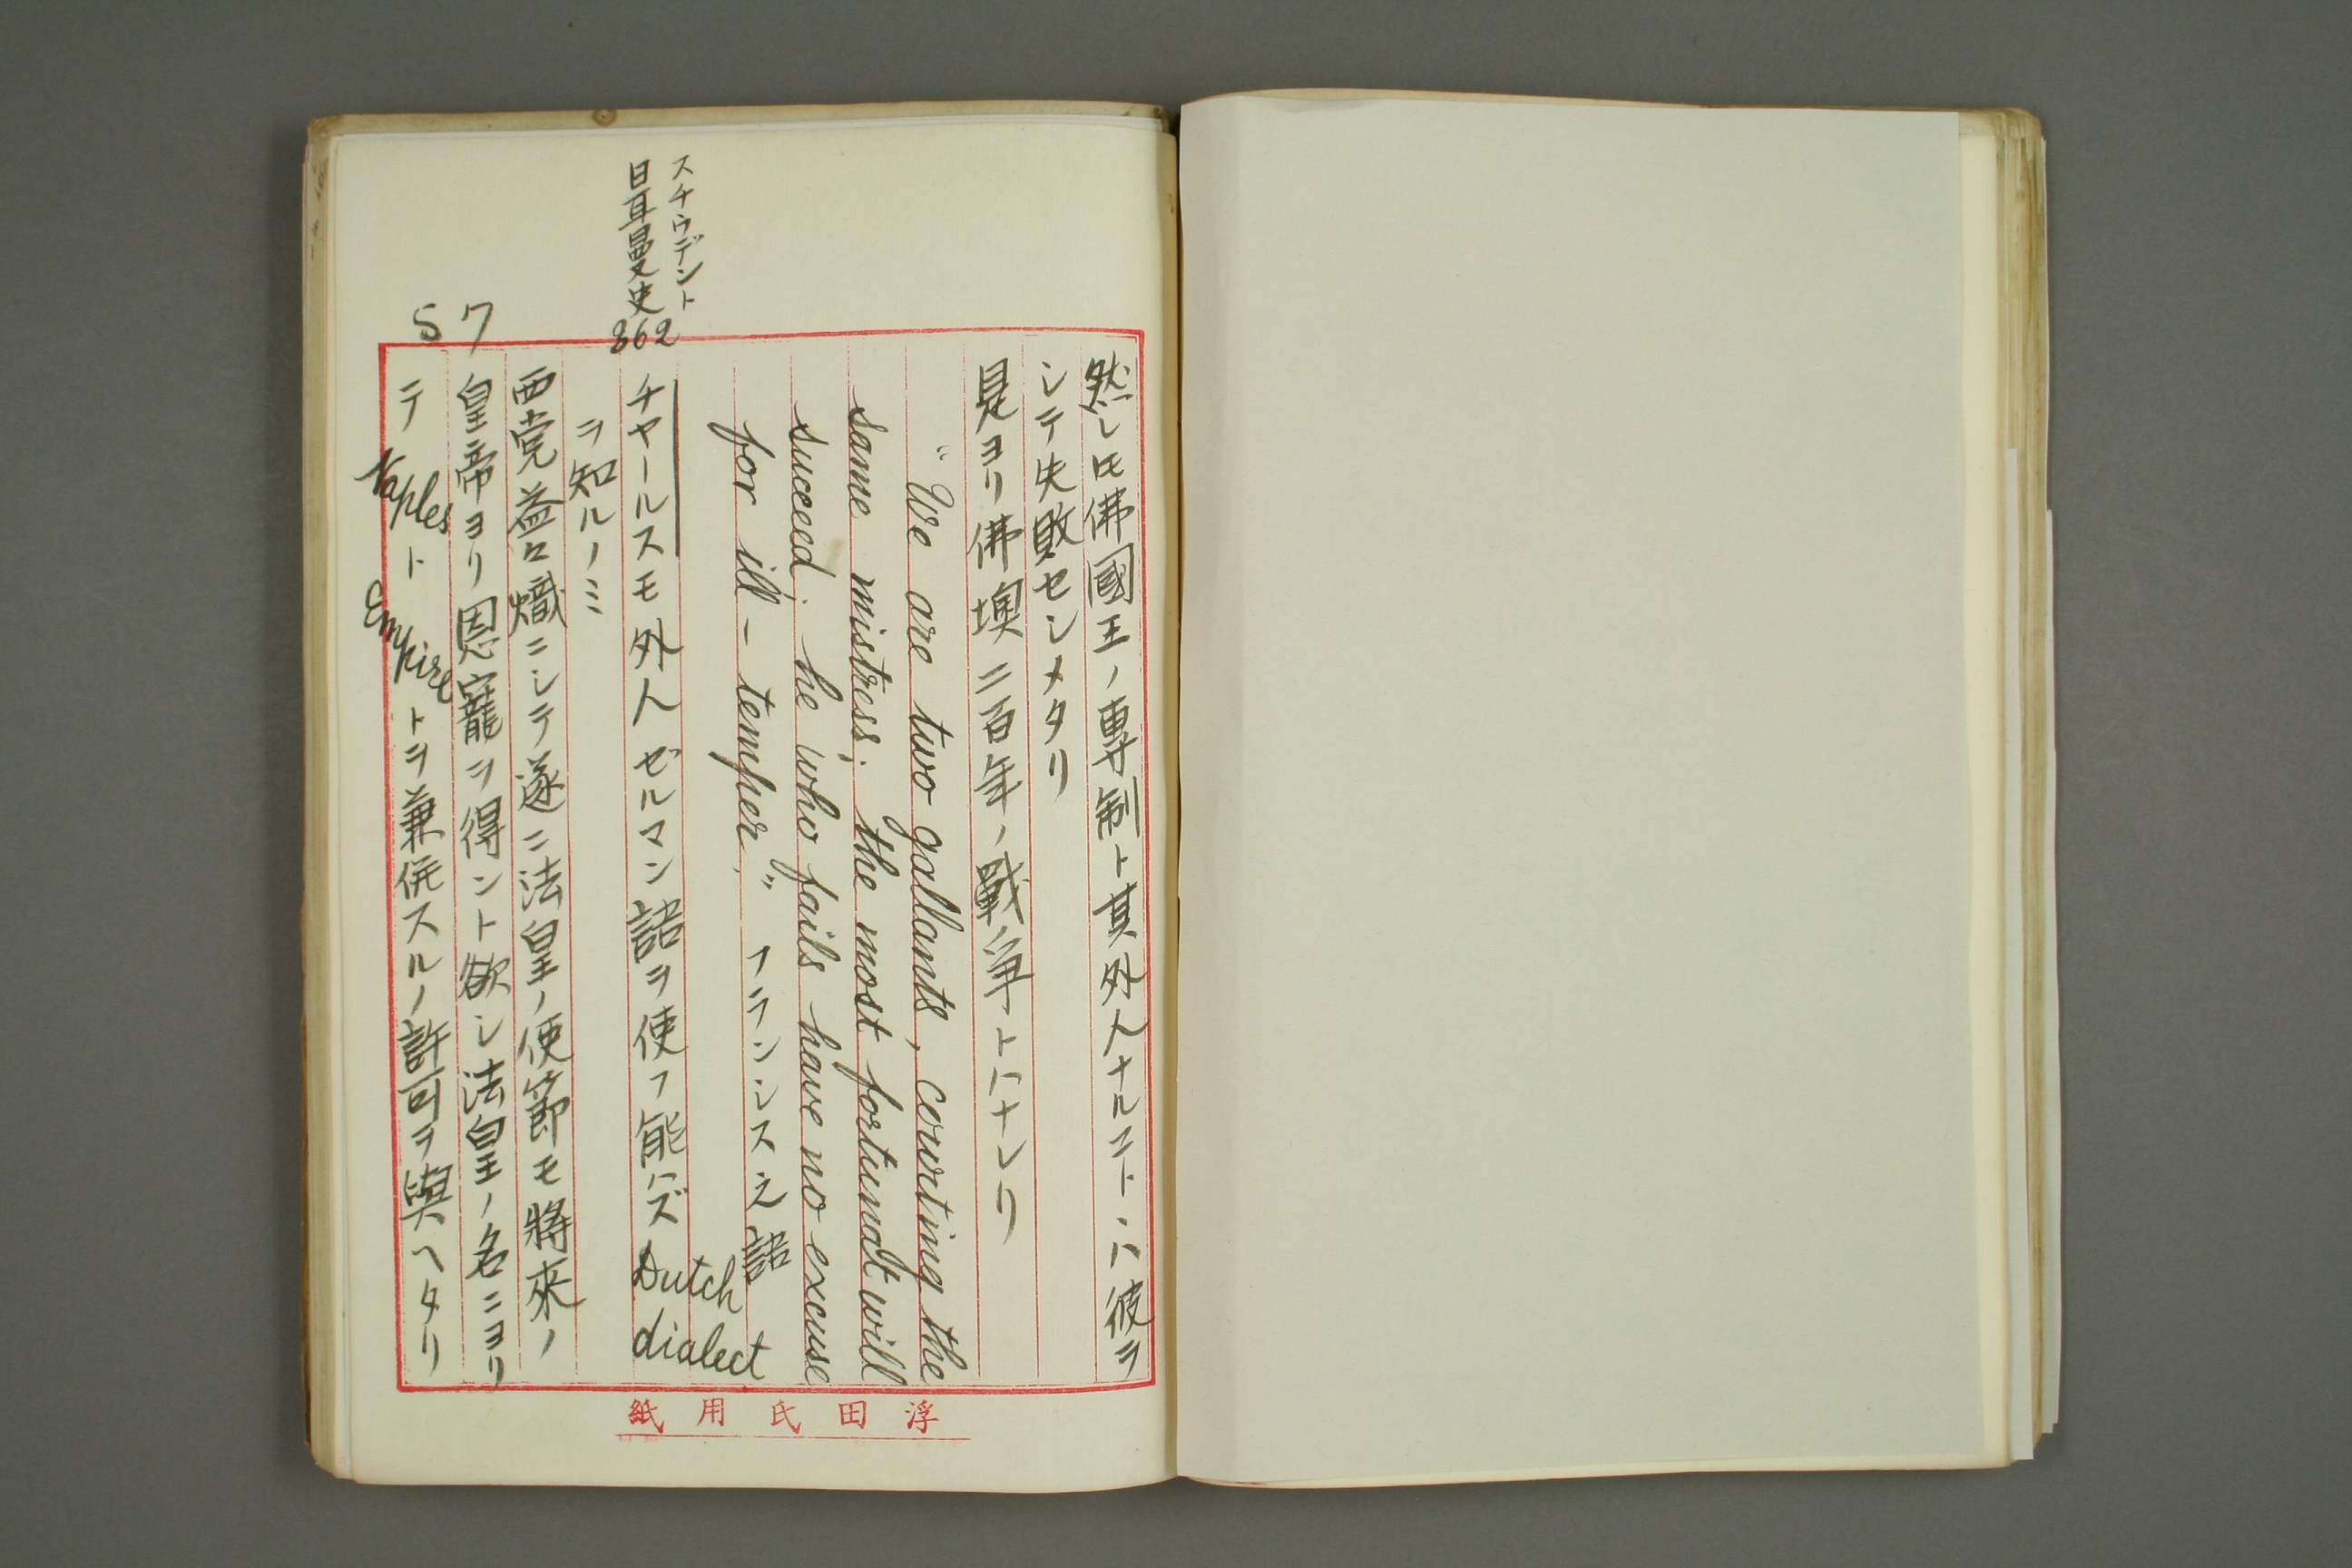 然レ𪜈佛國王ノ專制ト其外人ナルコトハ彼ヲ
シテ失敗セシメタリ
是ヨリ佛墺二百年ノ戰争トハナレリ
"We are two gallants, courting the
same mistress; the most fortunat will
succeed. he who fails have no excuse
for ill-temper." フランシス之語
スチウデント
日耳曼史
362
チヤールスモ外人ゼルマン語ヲ使フ能ハズ Dutch dialect
ヲ知ルノミ
西党益々熾ニシテ遂ニ法皇ノ使節モ將來ノ
57
皇帝ヨリ恩寵ヲ得ント欲シ法皇ノ名ニヨリ
テ Naples ト Empire トヲ兼併スルノ許可ヲ與ヘタリ
浮田氏用紙